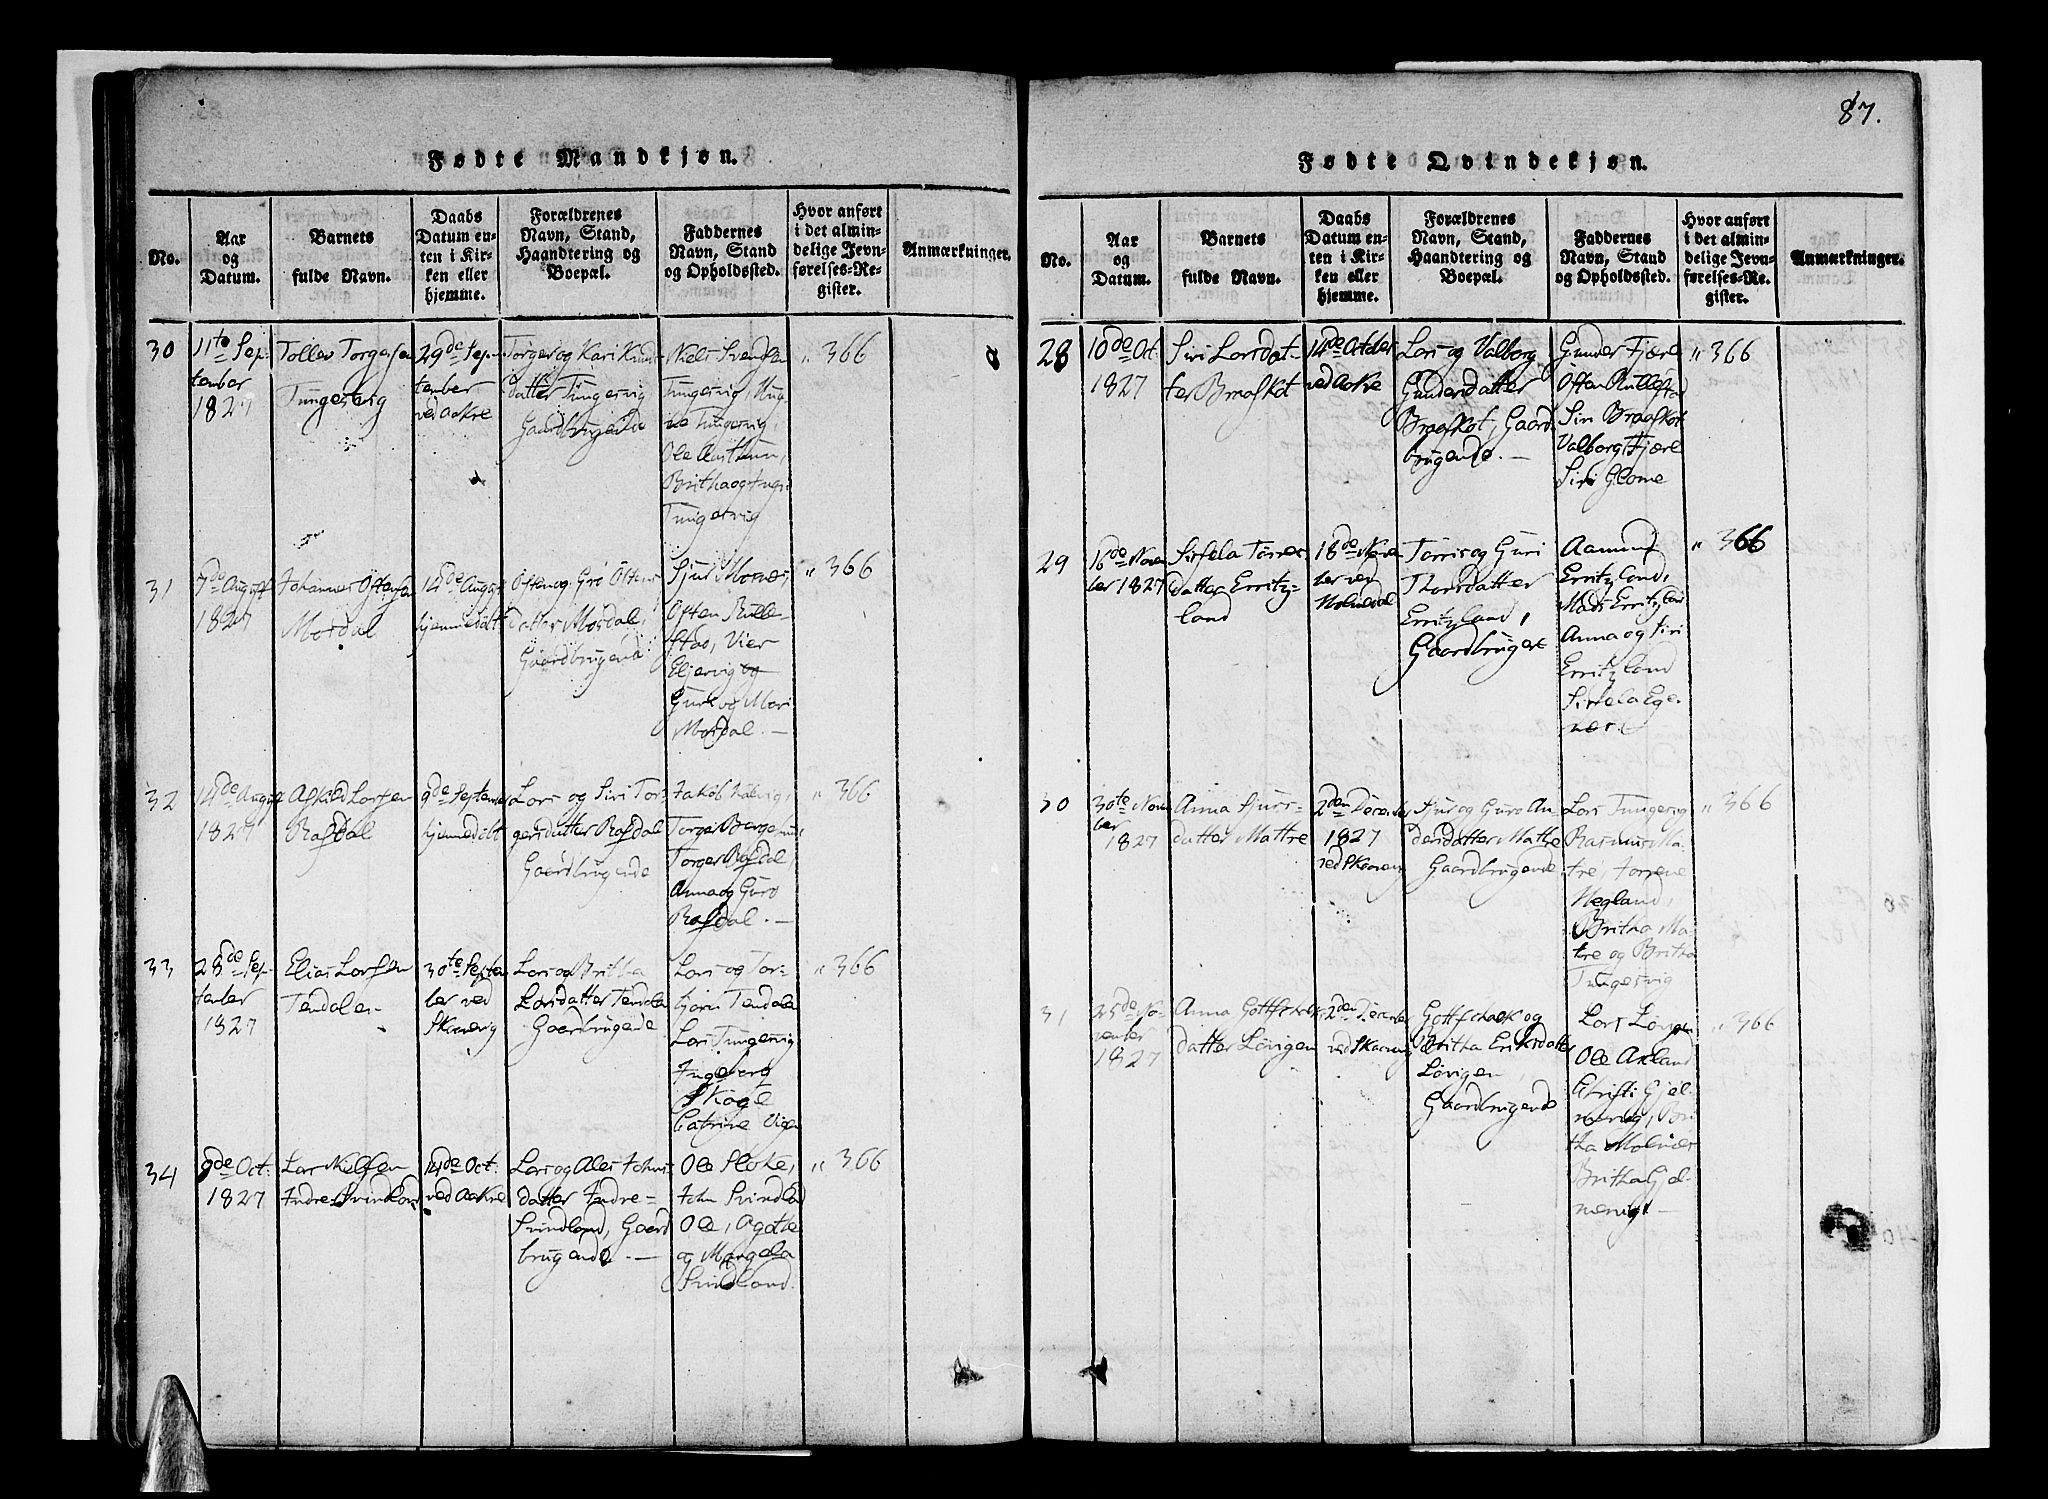 87.
Fødte Mandkjøn.
No.
Aar
og
Datum.
Barnets
fulde Navn.
Daabs
Datum en-
ten i Kir-
ken eller
hjemme.
Forældrenes
Navn, Stand,
Haandtering og
Boepæl.
Faddernes
Navn, Stand
og Opholdssted.
Hvor anført
i det almin-
delige Jevn-
førelses-Re-
gister.
Anmærkninger.
30
11te Sep-
tember
1827
Tollev Torgersen
Tungesvig
29de Sep-
tember
ved Aakre
Torger og Kari Knuds-
datter Tungesvig
Gaardbrugende
Niels Svendsen
Tungesvig,
Tungesvig,
Ole
Britha og
Tungesvig
" 366
31
7de August
1827
Johannes Ostensen
Mosdal
12de August
hjemmedøbt
Osten og Gro Ostens-
datter Mosdal,
Gaardbrugende
Sjur Mosnes,
Osten Rulle-
stad, Vier
Eljervig og
Guri og Mari
Mosdal. —
" 366
32
14de August
1827
Askild Larsen
Rafdal
9de September
hjemmedøbt
Lars og Siri Tor-
gersdatter Rafdal
Gaardbrugende
Jakob
Torger
Torger Rafdal,
Anna og Guro
Rafdal. —
" 366
33
28de Sep-
tember
1827
Elias Larsen
Tendalen
30te Septem-
ber ved
Skaanevig
Lars og Britha
Larsdatter Tendalen
Gaardbrugende
Lars og Tor-
bjørn Tendalen
Lars Tungesvig
Ingeborg
Skoge
Catrine Vigen
" 366
34
9de Oct.
1827
Lars Nilssen
Indre Svindland
14de Oct.
ved Aakre
Lars og Ales Johns-
datter Indre-
Svindland, Gaard-
brugende —
Ole
John Svindland
Ole, Agathe
og Margela
Svindland.
" 366
Fødte Qvindekjøn.
No.
Aar
og
Datum.
Barnets
fulde Navn.
Daabs
Datum en-
ten i Kir-
ken eller
hjemme.
Forældrenes
Navn, Stand,
Haandtering og
Boepæl.
Faddernes
Navn, Stand
og Opholdssted.
Hvor anført
i det almin-
delige Jevn-
førelses-Re-
gister.
Anmærkninger.
28
10de Oct.
1827
Siri Larsdat-
ter Braaskot
14de October
ved Aakre
Lars og Valborg
Gundersdatter
Braaskot, Gaard-
brugende. —
Gunder Fjære
Osten Rullestad
Siri Braaskot
Valborg Fjære
Siri Glome
" 366
29
16de Novem-
ber 1827
Sissela Torres
datter Erritz-
land
18de Novem-
ber ved
Holmedal
Torris og Guri
Thorsdatter
Erritzland,
Gaardbruger
Aamund
Erritzland,
Mads Erritzland
Anna og Siri
Erritzland
Sissela Ege-
nær.
" 366
30
30te Novem-
ber
1827
Anna Sjurs-
datter Mattre
2den December
1827
ved Skaanevig
Sjur og Guro An-
dersdatter Mattre
Gaardbrugende
Lars Tungesvig
Rasmus Ma-
tre,
Hegland,
Britha Ma-
tre og Britha
Tungesvig
" 366
31
25de No-
vember
1827
Anna Gottschalks-
datter Løvigen
2den December
ved Skaanevig
Gottschalk og
Britha Eriksdatter
Løvigen,
Gaardbrugende
Lars Løvigen
Ole Axland
Christi Gjel-
mervig, Bri-
tha Molnæs
Britha Gjel-
mervig —
" 366